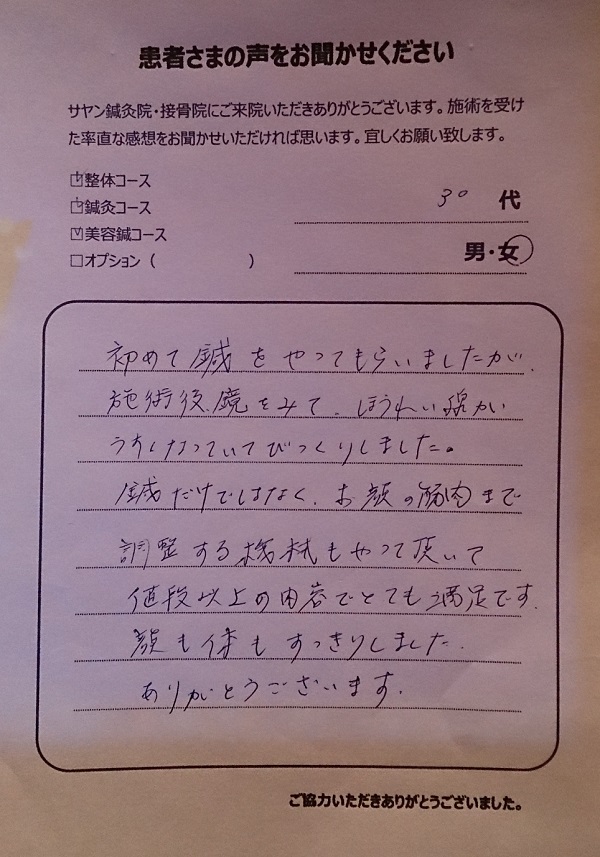 患者さまの声をお聞かせください
サヤン鍼灸院・接骨院にご来院いただきありがとうございます。施術を受け
た率直な感想をお聞かせいただければ思います。宜しくお願い致します。
☑整体コース
☑鍼灸コース
☑美容鍼コース
□オプション（　　　　　）
30 代
男・女
初めて鍼をやってもらいましたが、
施術後、鏡をみて、ほうれい線が
うすくなっていてびっくりしました。
鍼だけではなく、お顔の筋肉まで
調整する機械もやって頂いて
値段以上の内容でとても満足です。
顔も体もすっきりしました。
ありがとうございます。
ご協力いただきありがとうございました。